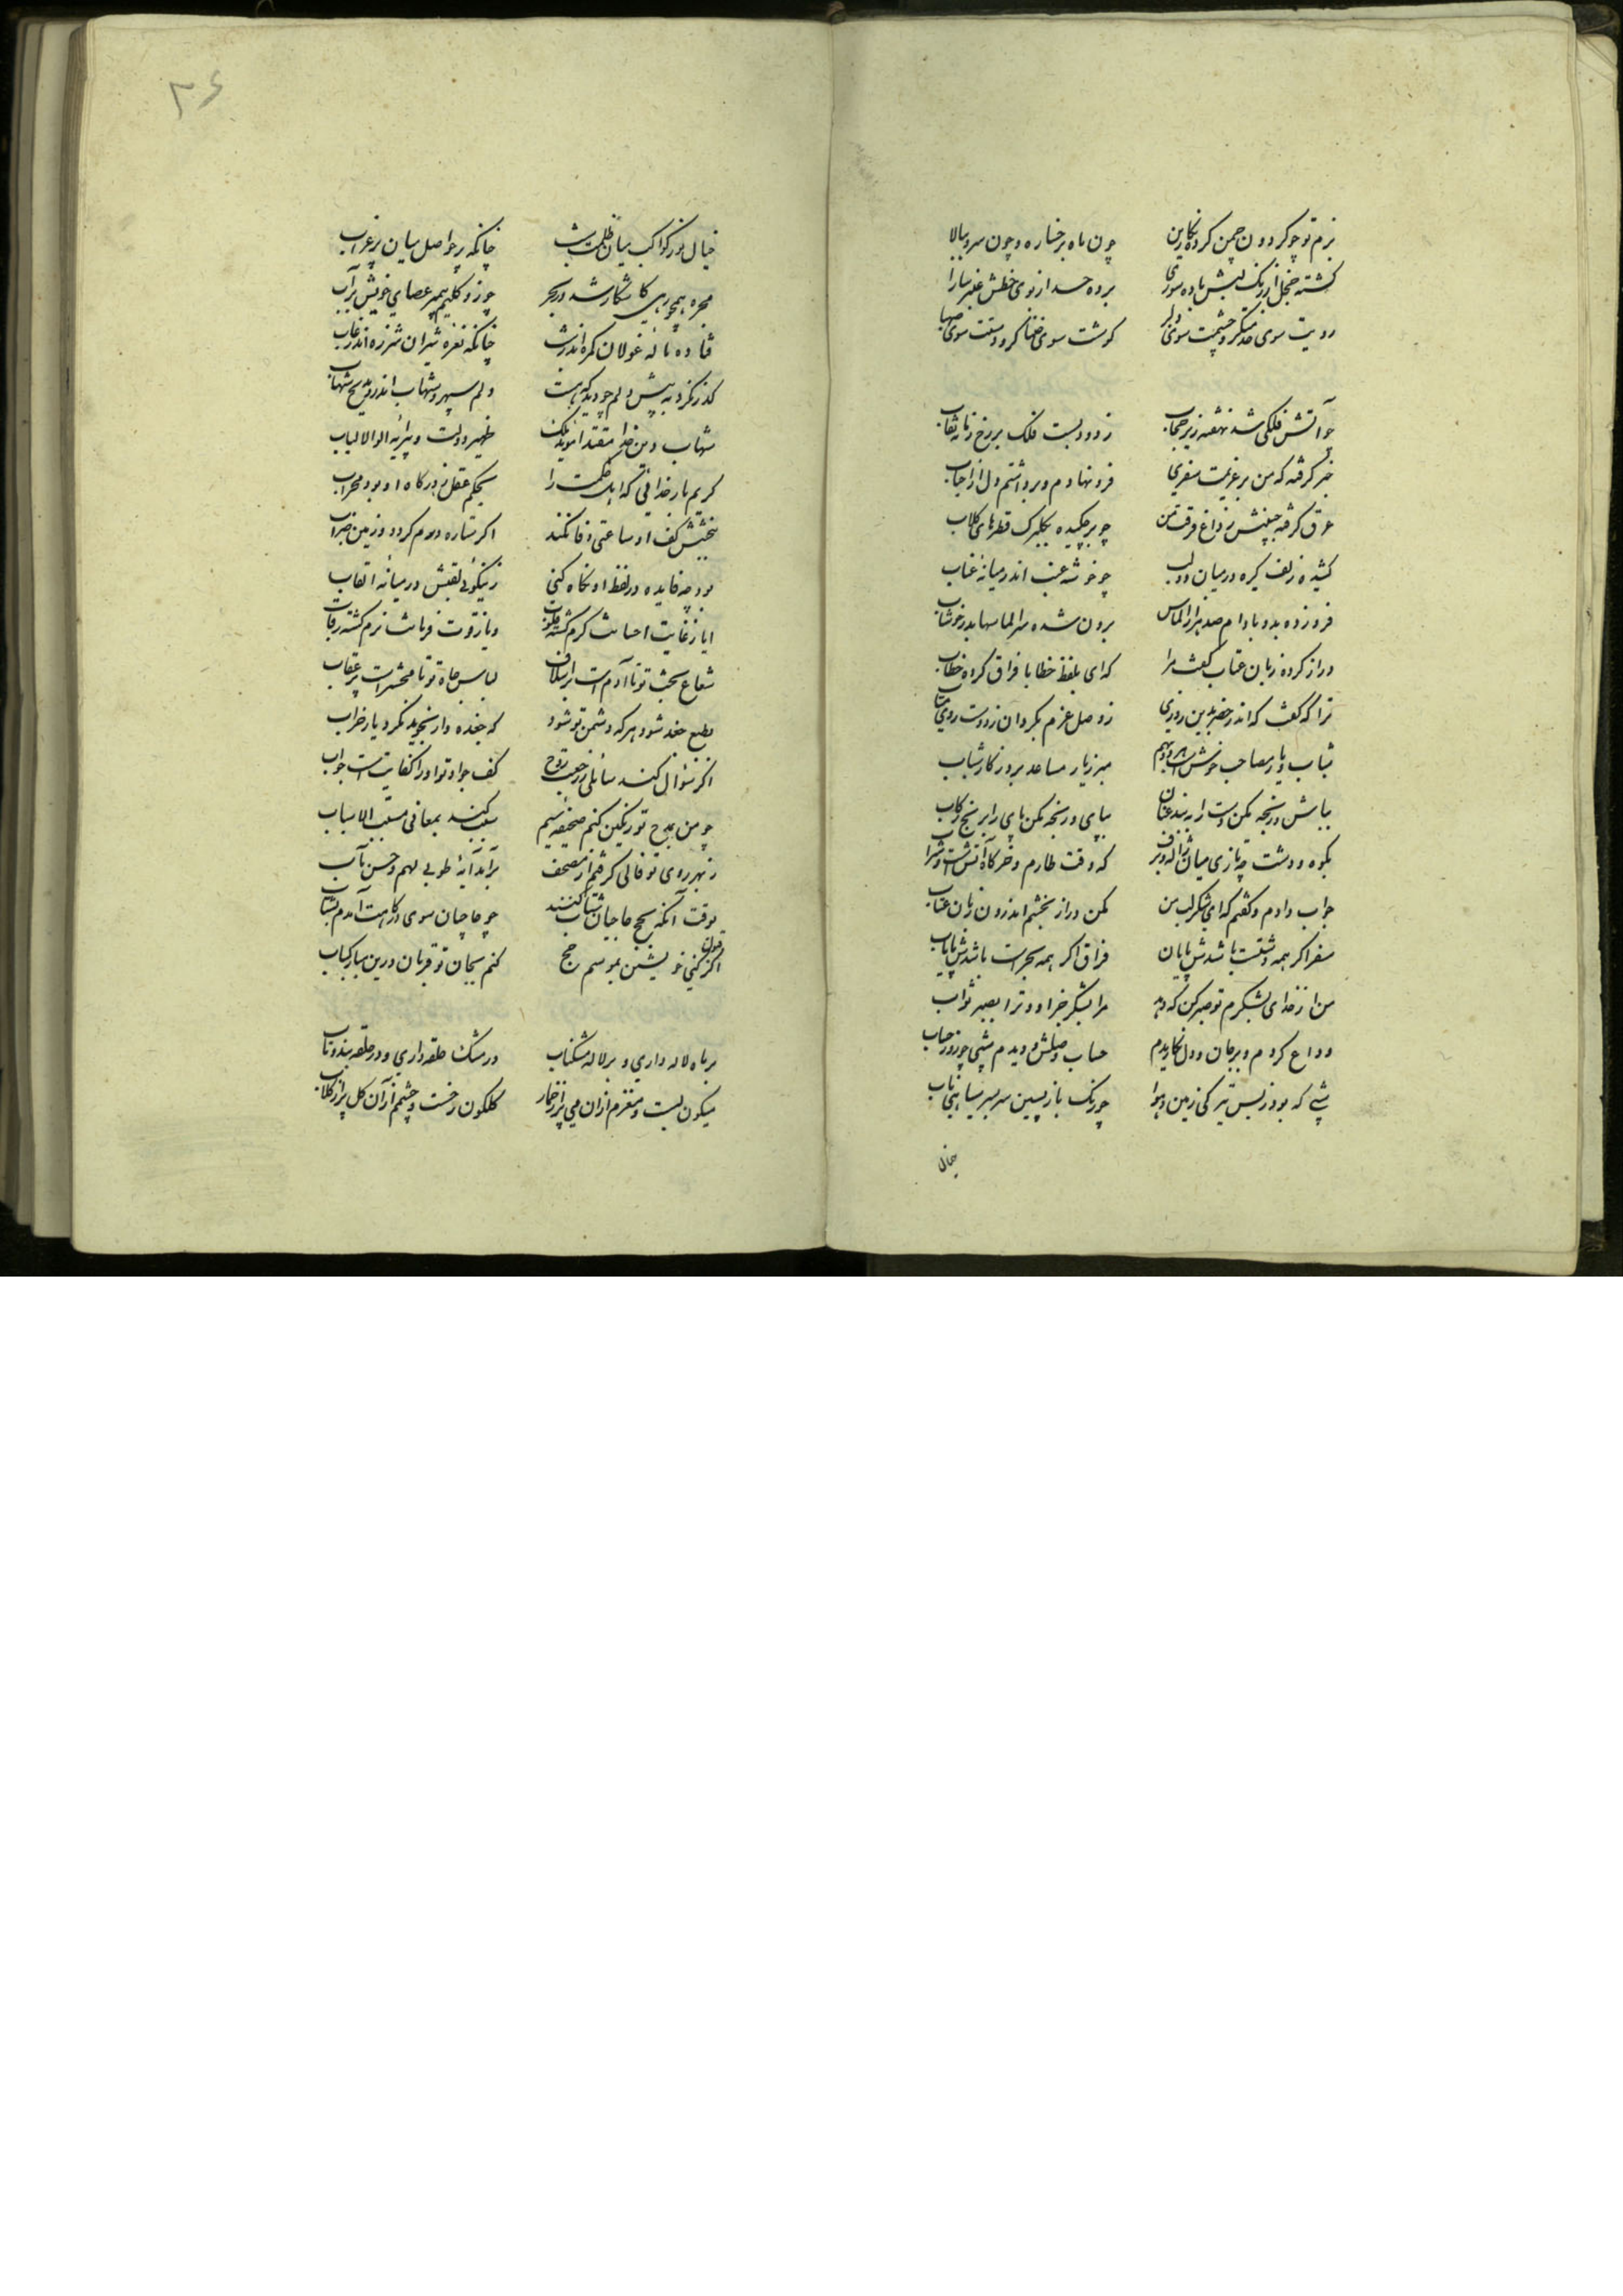 بزم تو چو گردون چمن کرده نگارین چون ماه برخساره و چون سرو ببالا
گشته خجل از رنگ لبش باده سوری برده حسد از بوی خطش عنبر سارا
رویت سوی خدمتگر و چشمت سوی دلبر گوشت سوی خنیاگر و دستت سوی صهبا
چو آتش فلکی شد نهفته زیر حجاب ز دود بست فلک بر رخ زمانه نقاب
خبر گرفته که من بر عزیمت سفری فرو نهادم و برداشتم دل از احباب
عرق گرفته جبینش ز داغ فرقت من چو برچکیده بگلبرگ قطرهای گلاب
کشیده زلف گره در میان دو لب چو خوشه عنب اندر میانه عناب
فرو زده بدو بادام صد هزار الماس برون شده سر الماسها بدر خوشاب
دراز کرده زبان عتاب گفت مرا که ای بلفظ خطا با فراق کرده خطاب
ترا که گفت که اندر حضر بدین زودی ز وصل عزم بگردان ز دوست روی متاب
شباب و یار مصاحب خوش است هر دو بهم مبر ز یار مساعد بروزگار شباب
بباش و رنجه مکن دست را ببند عنان بپای و رنجه مکن پای را برنج رکاب
بکوه و دشت چه بازی میان ژاله و برف که وقت طارم و خرگاه آتشست و شراب
جواب دادم و گفتم که ای شکر لب من مکن دراز بخشم اندرون زبان عتاب
سفر اگر همه دشتست باشدش پایان فراق اگر همه بحر است باشدش پایاب
من از خدای بشکرم تو صبر کن که دهد مرا بشکر جزا و ترا بصبر ثواب
وداع کردم و بر جان و دل نگاریدم حساب وصلش و دیدم شبی چو روز حساب
شبی که بود ز بس تیرگی زمین و هوا چو رنگ باز پسین سر بسر سیاهی ناب
خیال
۳۶
خیال نور کواکب میان ظلمت شب چنانکه پر حواصل میان پر غراب
مجره همچو رهی کاشکار شد در بحر چو زد کلیم پیمبر عصای خویش بر آب
فتاده ناله غولان بکمره اندر شب چنانکه نعره شیران شرزه اندر غاب
گذر نکرد به پیش دلم چو دید که هست دلم سپهر و شهاب اندرو مدیح شهاب
شهاب دین خدا مقتدا مؤید ملک ظهیر دولت و پیرایه اولو الالباب
کریم بار خدائی که اهل حکمت را بحکم عقل ز درگاه او بود محراب
ببخشش کف او ساعتی وفا نکند اگر ستاره درم گردد و زمین ضراب
بود چه فایده در لفظ او نگاه کنی ز نیکوئی لقبش در میانه القاب
ایا ز غایت احسانت گرم گشته قلوب و یا ز قوت فرمانت نرم گشته رقاب
شعاع بخت تو تا آدمست بر اسلاف لباس جاه تو تا محشرست بر اعقاب
بطبع جغد شود هر که دشمن تو شود که جغد وار نجوید مگر دیار خراب
اگر سؤال کند سائلی ز حبیب روح کف جواد تو او را کفایتست جواب
چو من بمدح تو رنگین کنم صحیفه سیم سبب کند بمعانی مسبب الاسباب
ز بهر روی تو فالی گرفتم از مصحف برآمد آیه طوبی لهم و حسن مآب
بوقت آنکه بحج حاجیان شتاب کنند چو حاجیان سوی درگاهت آمدم بشتاب
اگر قبول کنی خویشتن بموسم حج کنم بجان تو قربان درین مبارک باب
بر ماه لاله داری و بر لاله مشکناب در مشک حلقه داری و در حلقه بند و تاب
میگون لبست و مغزم از آن می پر از خمار گلگون رخت و چشمم از آن گل پر از گلاب